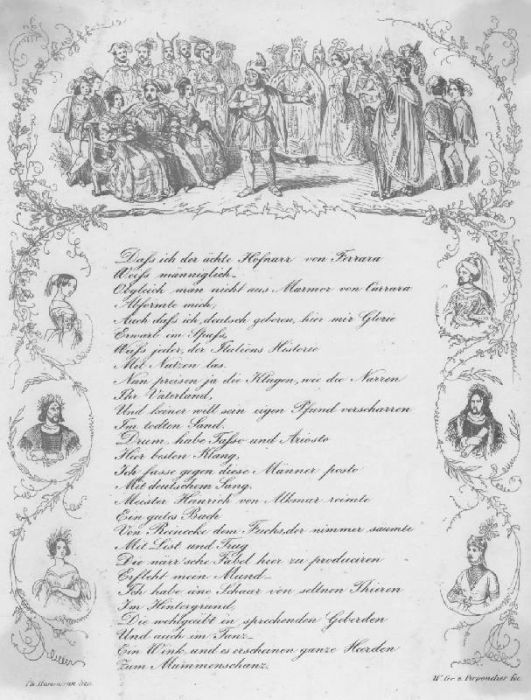 Daſs ich der ächte Hofnarr von Ferrara
Weiſs männiglich.
Obgleich man nicht aus Marmor von Carrara
Abformte mich,
Auch daſs ich, deutsch geboren, hier mir Glorie
Erwarb im Spaſs,
Weiſs jeder, der Italiens Historie
Mit Nutzen las.
Nun preisen ja die Klugen, wie die Narren
Ihr Vaterland,
Und keiner will sein eigen Pfund verscharren
Im todten Sand.
Drum habe Taſso und Ariosto
Hier besten Klang,
Ich fasse gegen diese Männer posto
Mit deutschem Sang.
Meister Heinrich von Alkmar reimte
Ein gutes Buch
Von Reinecke dem Fuchs, der nimmer säumte
Mit List und Trug
Die närr'sche Fabel hier zu produciren
Erfleht mein Mund_
Ich habe eine Schaar von seltnen Thieren
Im Hintergrund,
Die wohlgeübt in sprechenden Geberden
Und auch im Tanz_
Ein Wink, und es erscheinen ganze Heerden
Zum Mummenschanz.
W. Gr. v. Perponcher fec.